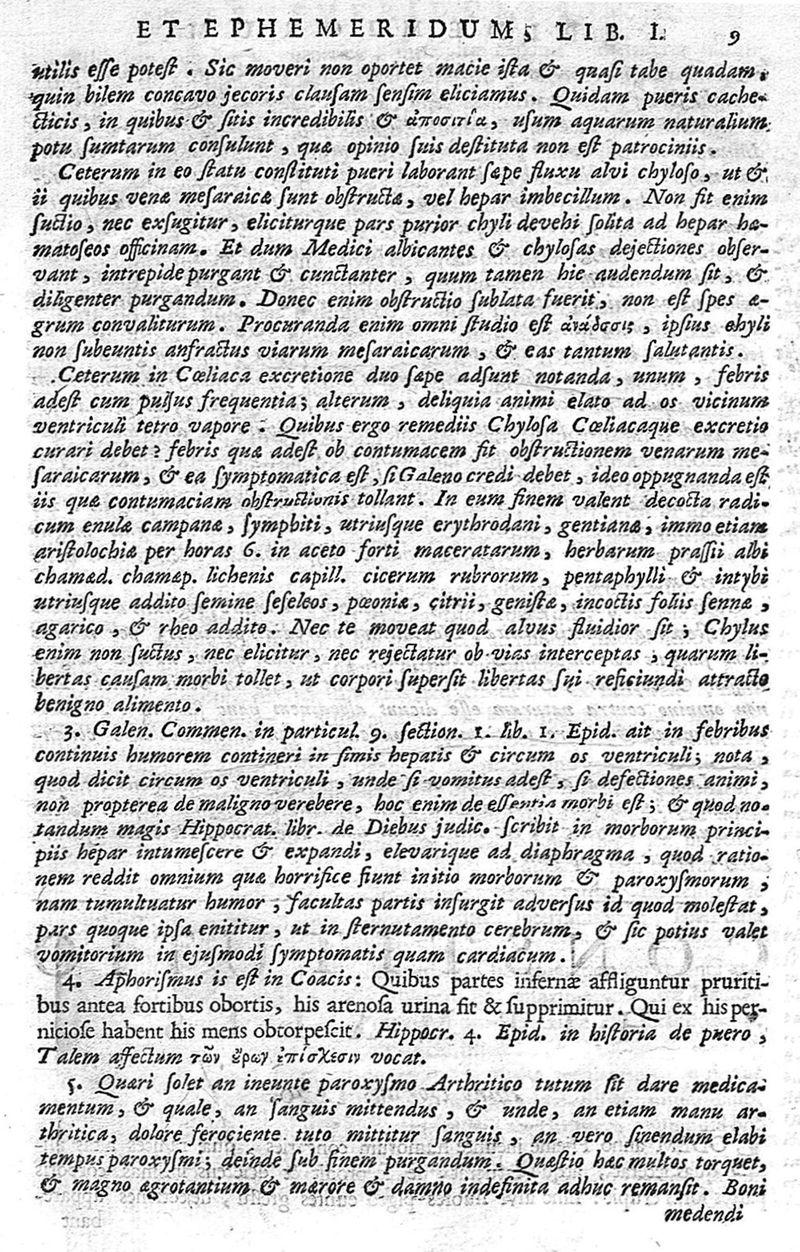 ET EPHEMERIDUM, LIB. I. 9
utilis esse potest. Sic moveri non oportet macie ista & quasi tabe quadam,
quin bilem concavo jecoris clausam sensim eliciamus. Quidam pueris cache-
cticis, in quibus & sitis incredibilis & ἀποσιτία, usum aquarum naturalium
potu sumtarum consulunt, quæ opinio suis destituta non est patrociniis.
Ceterum in eo statu constituti pueri laborant sæpe fluxu alvi chyloso, ut &
ii quibus venæ mesaraicæ sunt obstructæ, vel hepar imbecillum. Non fit enim
suctio, nec exsugitur, eliciturque pars purior chyli devehi solita ad hepar hæ-
matoseos officinam. Et dum Medici albicantes & chylosas dejectiones obser-
vant, intrepide purgant & cunctanter, quum tamen hic audendum sit, &
diligenter purgandum. Donec enim obstructio sublata fuerit, non est spes æ-
grum convaliturum. Procuranda enim omni studio est ἀνάδοσις, ipsius chyli
non subeuntis anfractus viarum mesaraicarum, & eas tantum salutantis.
Ceterum in Cœliaca excretione duo sæpe adsunt notanda, unum, febris
adest cum pulsus frequentia; alterum, deliquia animi elato ad os vicinum
ventriculi tetro vapore. Quibus ergo remediis Chylosa Cœliacaque excretio
curari debet? febris quæ adest ob contumacem fit obstructionem venarum me-
saraicarum, & ea symptomatica est, si Galeno credi debet, ideo oppugnanda est
iis quæ contumaciam obstructionis tollant. In eum finem valent decocta radi-
cum enulæ campanæ, symphiti, utriusque erythrodani, gentianæ, immo etiam
aristolochiæ per horas 6. in aceto forti maceratarum, herbarum prassii albi
chamæd. chamæp. lichenis capill. cicerum rubrorum, pentaphylli & intybi
utriusque addito semine seseleos, pœoniæ, citrii, genistæ, incoctis foliis sennæ,
agarico, & rheo addito. Nec te moveat quod alvus fluidior sit; Chylus
enim non suctus, nec elicitur, nec rejectatur ob vias interceptas, quarum li-
bertas causam morbi tollet, ut corpori supersit libertas sui reficiundi attracto
benigno alimento.
3. Galen. Commen. in particul. 9. section. 1. lib. 1. Epid. ait in febribus
continuis humorem contineri in simis hepatis & circum os ventriculi; nota,
quod dicit circum os ventriculi, unde si vomitus adest, si defectiones animi,
non propterea de maligno verebere, hoc enim de essentia morbi est; & quod no-
tandum magis Hippocrat. libr. de Diebus judic. scribit in morborum princi-
piis hepar intumescere & expandi, elevarique ad diaphragma, quod ratio-
nem reddit omnium quæ horrifice fiunt initio morborum & paroxysmorum,
nam tumultuatur humor, facultas partis insurgit adversus id quod molestat,
pars quoque ipsa enititur, ut in sternutamento cerebrum, & sic potius valet
vomitorium in ejusmodi symptomatis quam cardiacum.
4. Aphorismus is est in Coacis: Quibus partes infernæ affliguntur pruriti-
bus antea fortibus obortis, his arenosa urina fit & supprimitur. Qui ex his per-
niciose habent his mens obtorpescit. Hippocr. 4. Epid. in historia de puero,
Talem affectum τῶν ἐρῶν ἐπίσχεσιν vocat.
5. Quæri solet an ineunte paroxysmo Arthritico tutum sit dare medica-
mentum, & quale, an sanguis mittendus, & unde, an etiam manu ar-
thritica, dolore ferociente tuto mittitur sanguis, an vero sinendum elabi
tempus paroxysmi; deinde sub finem purgandum. Quæstio hæc multos torquet,
& magno ægrotantium & mærore & damno indefinita adhuc remansit. Boni
medendi